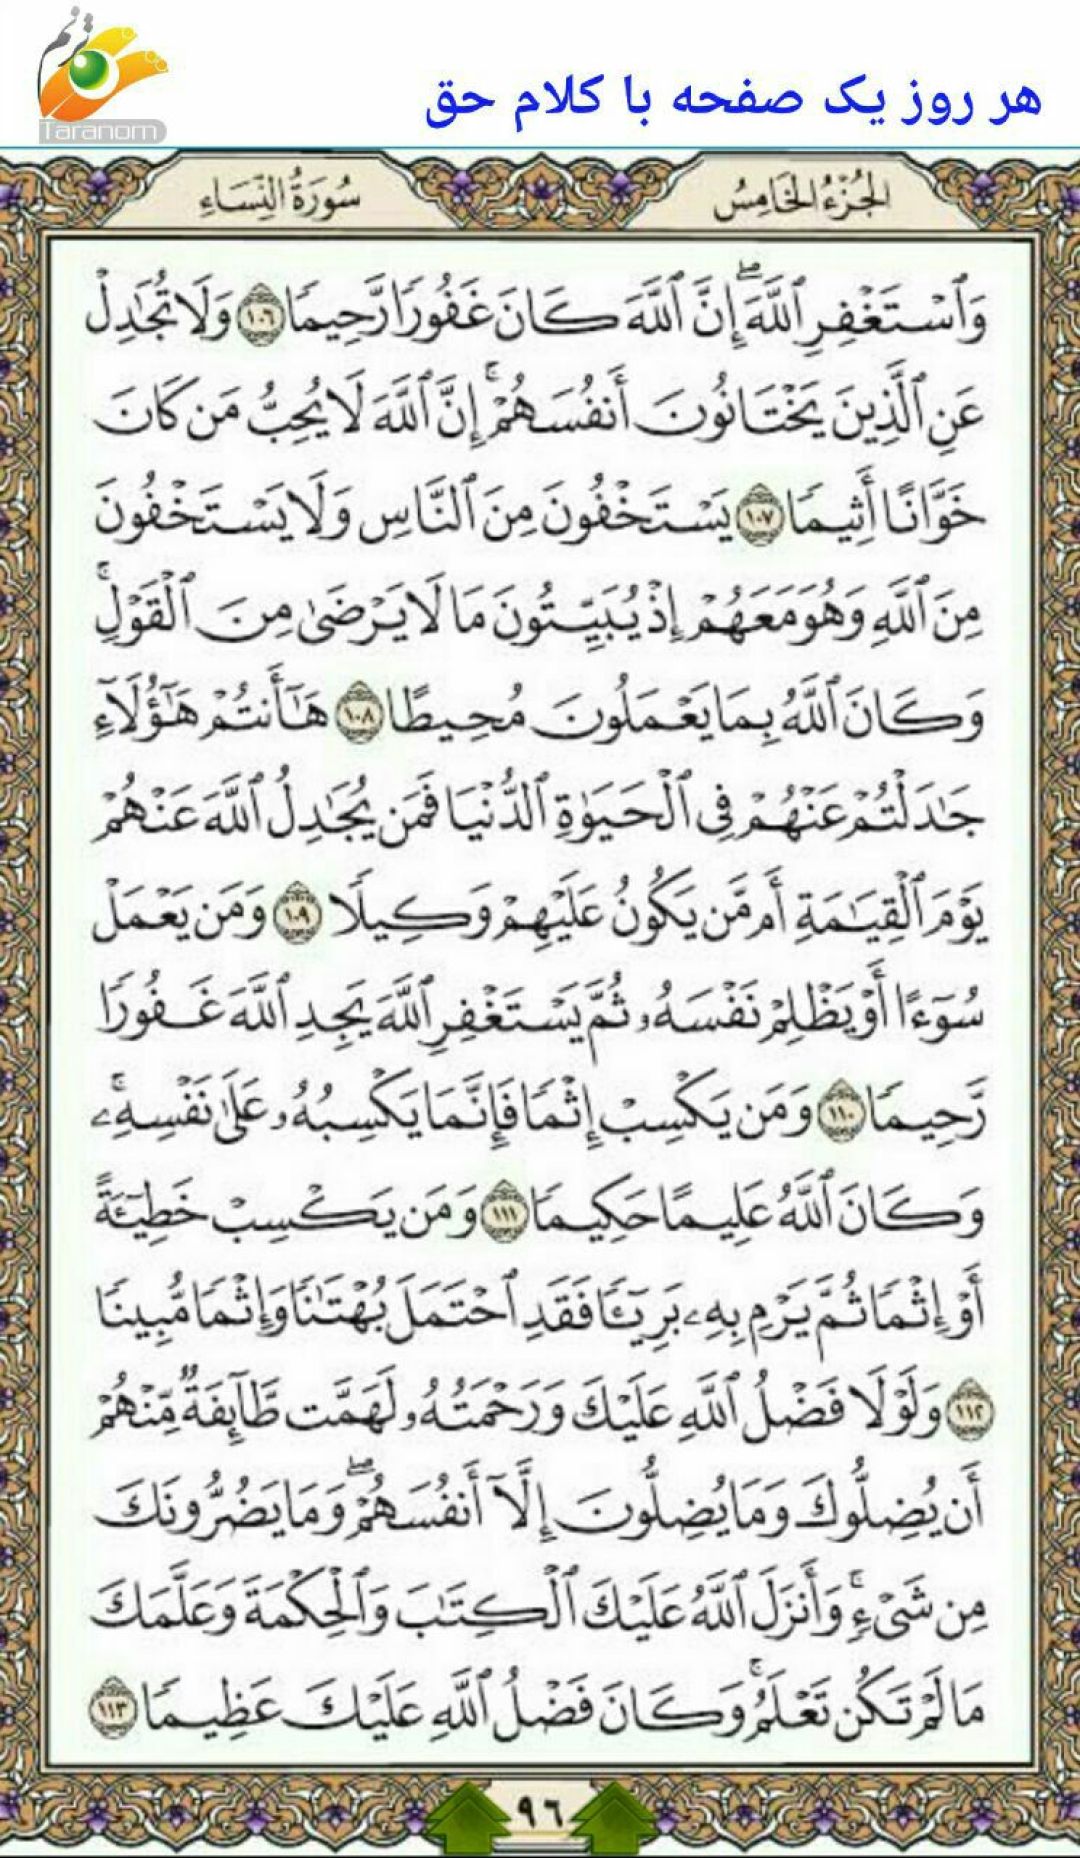 ترنم
Taranom
هر روز یک صفحه با کلام حق
الجُزْءُ الخَامِسُ
سُورَةُ النِّسَاءِ
وَٱسْتَغْفِرِ ٱللَّهَ ۖ إِنَّ ٱللَّهَ كَانَ غَفُورًا رَّحِيمًا ١٠٦ وَلَا تُجَٰدِلْ
عَنِ ٱلَّذِينَ يَخْتَانُونَ أَنفُسَهُمْ ۚ إِنَّ ٱللَّهَ لَا يُحِبُّ مَن كَانَ
خَوَّانًا أَثِيمًا ١٠٧ يَسْتَخْفُونَ مِنَ ٱلنَّاسِ وَلَا يَسْتَخْفُونَ
مِنَ ٱللَّهِ وَهُوَ مَعَهُمْ إِذْ يُبَيِّتُونَ مَا لَا يَرْضَىٰ مِنَ ٱلْقَوْلِ ۚ
وَكَانَ ٱللَّهُ بِمَا يَعْمَلُونَ مُحِيطًا ١٠٨ هَٰٓأَنتُمْ هَٰٓؤُلَآءِ
جَٰدَلْتُمْ عَنْهُمْ فِى ٱلْحَيَوٰةِ ٱلدُّنْيَا فَمَن يُجَٰدِلُ ٱللَّهَ عَنْهُمْ
يَوْمَ ٱلْقِيَٰمَةِ أَم مَّن يَكُونُ عَلَيْهِمْ وَكِيلًا ١٠٩ وَمَن يَعْمَلْ
سُوٓءًا أَوْ يَظْلِمْ نَفْسَهُۥ ثُمَّ يَسْتَغْفِرِ ٱللَّهَ يَجِدِ ٱللَّهَ غَفُورًا
رَّحِيمًا ١١٠ وَمَن يَكْسِبْ إِثْمًا فَإِنَّمَا يَكْسِبُهُۥ عَلَىٰ نَفْسِهِۦ ۚ
وَكَانَ ٱللَّهُ عَلِيمًا حَكِيمًا ١١١ وَمَن يَكْسِبْ خَطِيٓـَٔةً
أَوْ إِثْمًا ثُمَّ يَرْمِ بِهِۦ بَرِيٓـًٔا فَقَدِ ٱحْتَمَلَ بُهْتَٰنًا وَإِثْمًا مُّبِينًا
١١٢ وَلَوْلَا فَضْلُ ٱللَّهِ عَلَيْكَ وَرَحْمَتُهُۥ لَهَمَّت طَّآئِفَةٌ مِّنْهُمْ
أَن يُضِلُّوكَ وَمَا يُضِلُّونَ إِلَّآ أَنفُسَهُمْ ۖ وَمَا يَضُرُّونَكَ
مِن شَىْءٍ ۚ وَأَنزَلَ ٱللَّهُ عَلَيْكَ ٱلْكِتَٰبَ وَٱلْحِكْمَةَ وَعَلَّمَكَ
مَا لَمْ تَكُن تَعْلَمُ ۚ وَكَانَ فَضْلُ ٱللَّهِ عَلَيْكَ عَظِيمًا ١١٣
٩٦